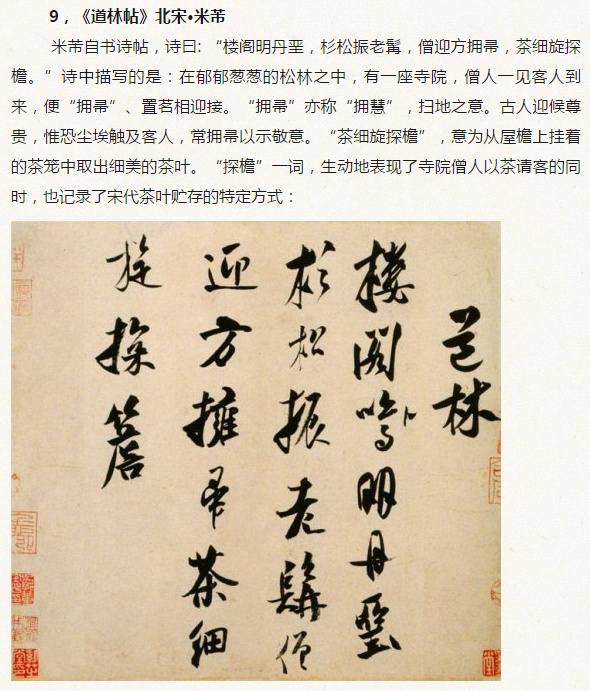 9，《道林帖》北宋·米芾
米芾自书诗帖，诗曰：“楼阁明丹垩，杉松振老髯，僧迎方拥帚，茶细旋探
檐。”诗中描写的是：在郁郁葱葱的松林之中，有一座寺院，僧人一见客人到
来，便“拥帚”、置茗相迎接。“拥帚”亦称“拥慧”，扫地之意。古人迎候尊
贵，惟恐尘埃触及客人，常拥帚以示敬意。“茶细旋探檐”，意为从屋檐上挂着
的茶笼中取出细美的茶叶。“探檐”一词，生动地表现了寺院僧人以茶请客的同
时，也记录了宋代茶叶贮存的特定方式：
道林
樓閣鳴明丹堊
杉松振老髯僧
迎方擁帚茶細
旋探簷